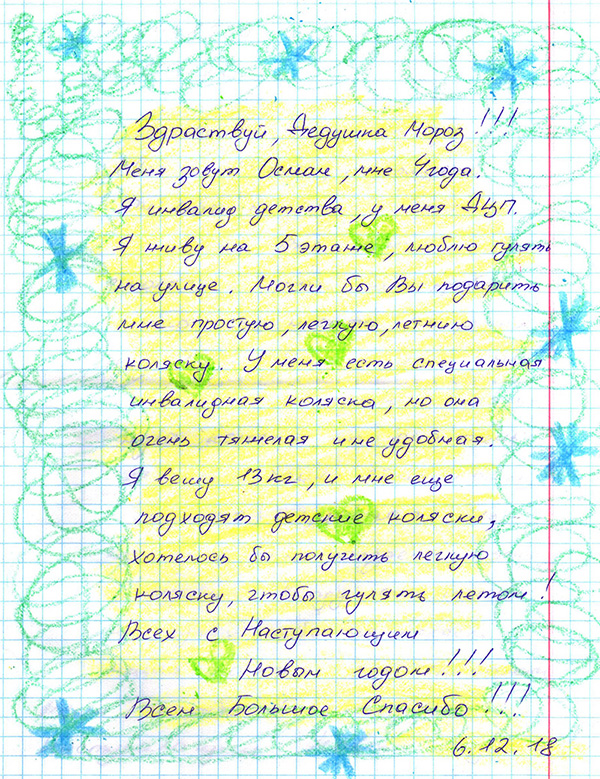 Здраствуй, Дедушка Мороз!!!
Меня зовут Осман, мне 4года.
Я инвалид детства, у меня ДЦП.
Я живу на 5 этаже, люблю гулять
на улице. Могли бы Вы подарить
мне простую, легкую, летнию
коляску. У меня есть специальная
инвалидная коляска, но она
очень тяжелая и не удобная.
Я вешу 13кг, и мне еще
подходят детские коляски,
хотелось бы получить легкую
коляску, чтобы гулять летом!
Всех с Наступающим
Новым годом!!!
Всем Большое Спасибо!!!
6.12.18